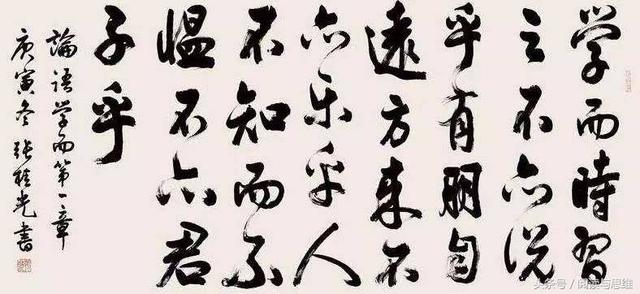 学而時習
之不亦说
乎有朋自
遠方来不
亦乐乎人
不知而不
愠不亦君
子乎
論语学而第一章
庚寅冬张桂光書
头条号 / 阅读与思维